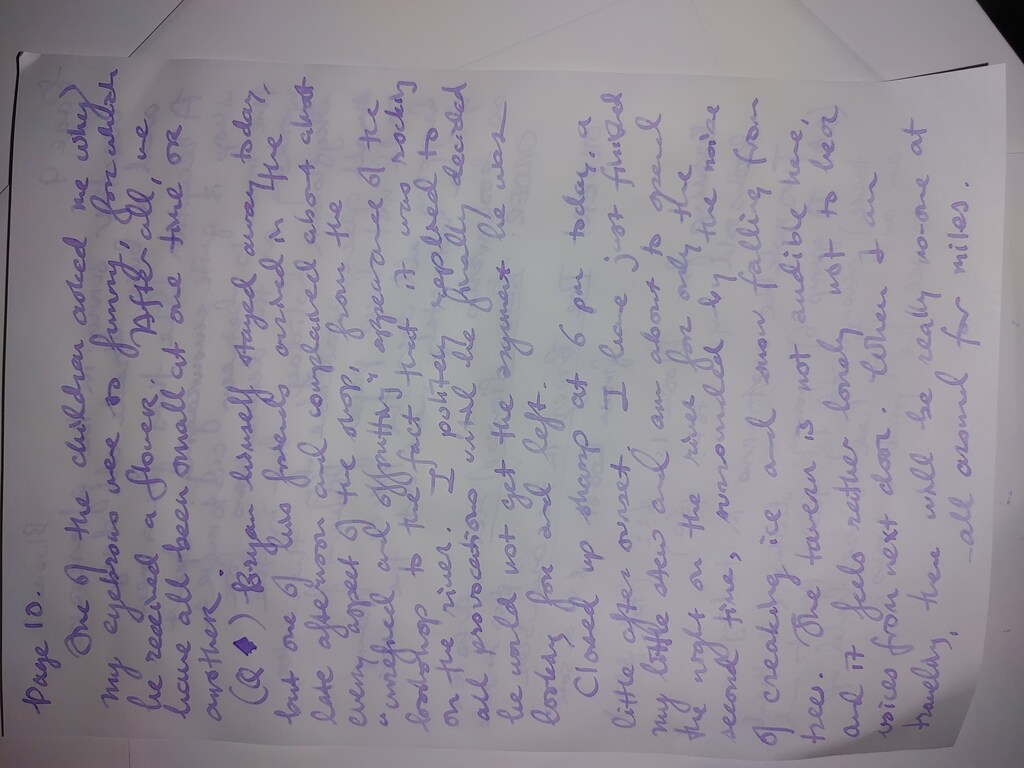 Page 10.
One of the children asked me why
my eyebrows were so funny, for which
he received a flower. After all, we
have all been small at one time or
another.
(Q ) Bryan himself stayed away today,
but one of his friends arrived in the
late afternoon and complained about almost
every aspect of the shop, from the
"unrefined and offputting" appearance of the
bookshop to the fact that it was rocking
on the river. I politely replied to
all provocations until he finally decided
he would not get the argument he was
looking for and left.
Closed up sharp at 6 pm today, a
little after sunset. I have just finished
my little stew and am about to spend
the night on the river for only the
second time, surrounded by the noise
of creaking ice and snow falling from
trees. The tavern is not audible here,
and it feels rather lonely not to hear
voices from next door. When I am
traveling, there will be really no-one at
all around for miles.